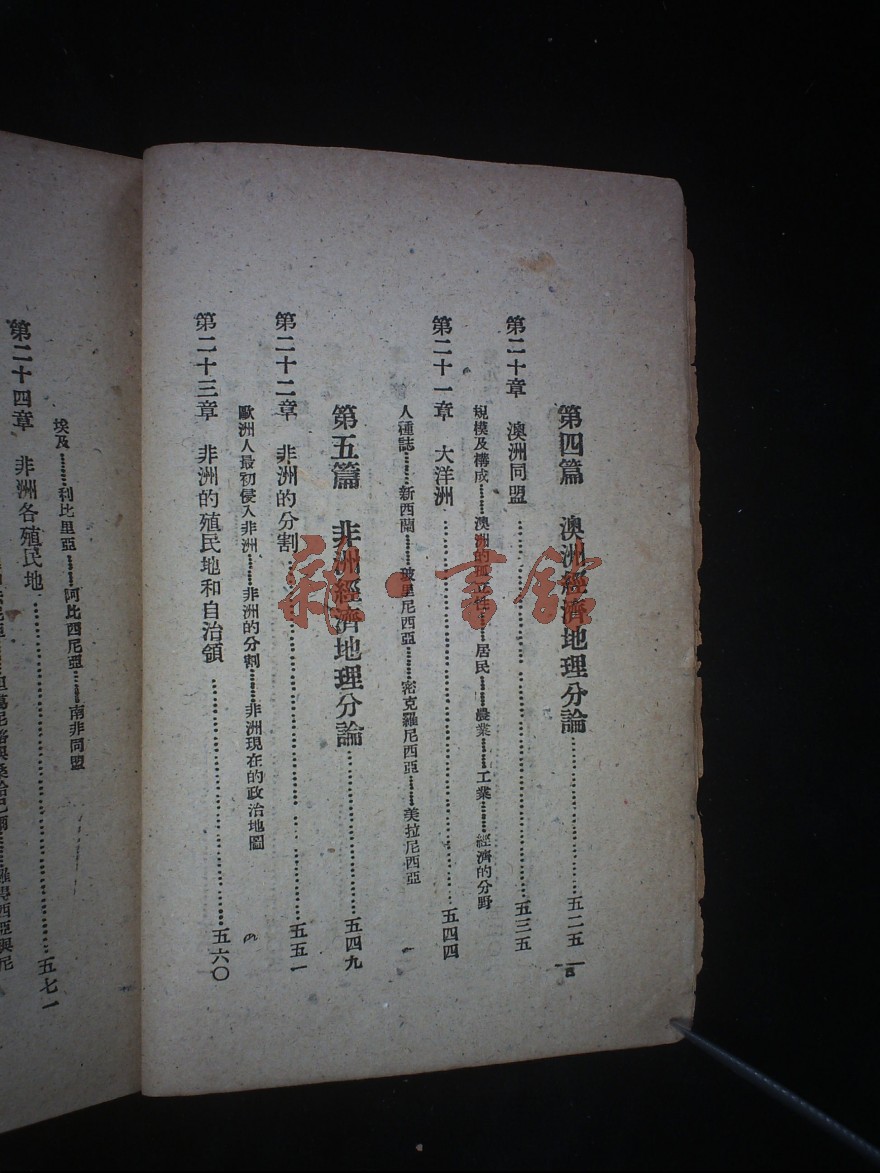 第四篇 澳洲經濟地理分論……五二五
第二十章 澳洲同盟……五三五
規模及構成……澳洲的孤立性……居民……農業……工業……經濟的分野
第二十一章 大洋洲……五四四
人種誌……新西蘭……玻里尼西亞……密克羅尼西亞……美拉尼西亞
第五篇 非洲經濟地理分論……五四九
第二十二章 非洲的分割……五五一
歐洲人最初侵入非洲……非洲的分割……非洲現在的政治地圖
第二十三章 非洲的殖民地和自治領……五六〇
埃及……利比里亞……阿比西尼亞……南非同盟
第二十四章 非洲各殖民地……五七一
雜·書館